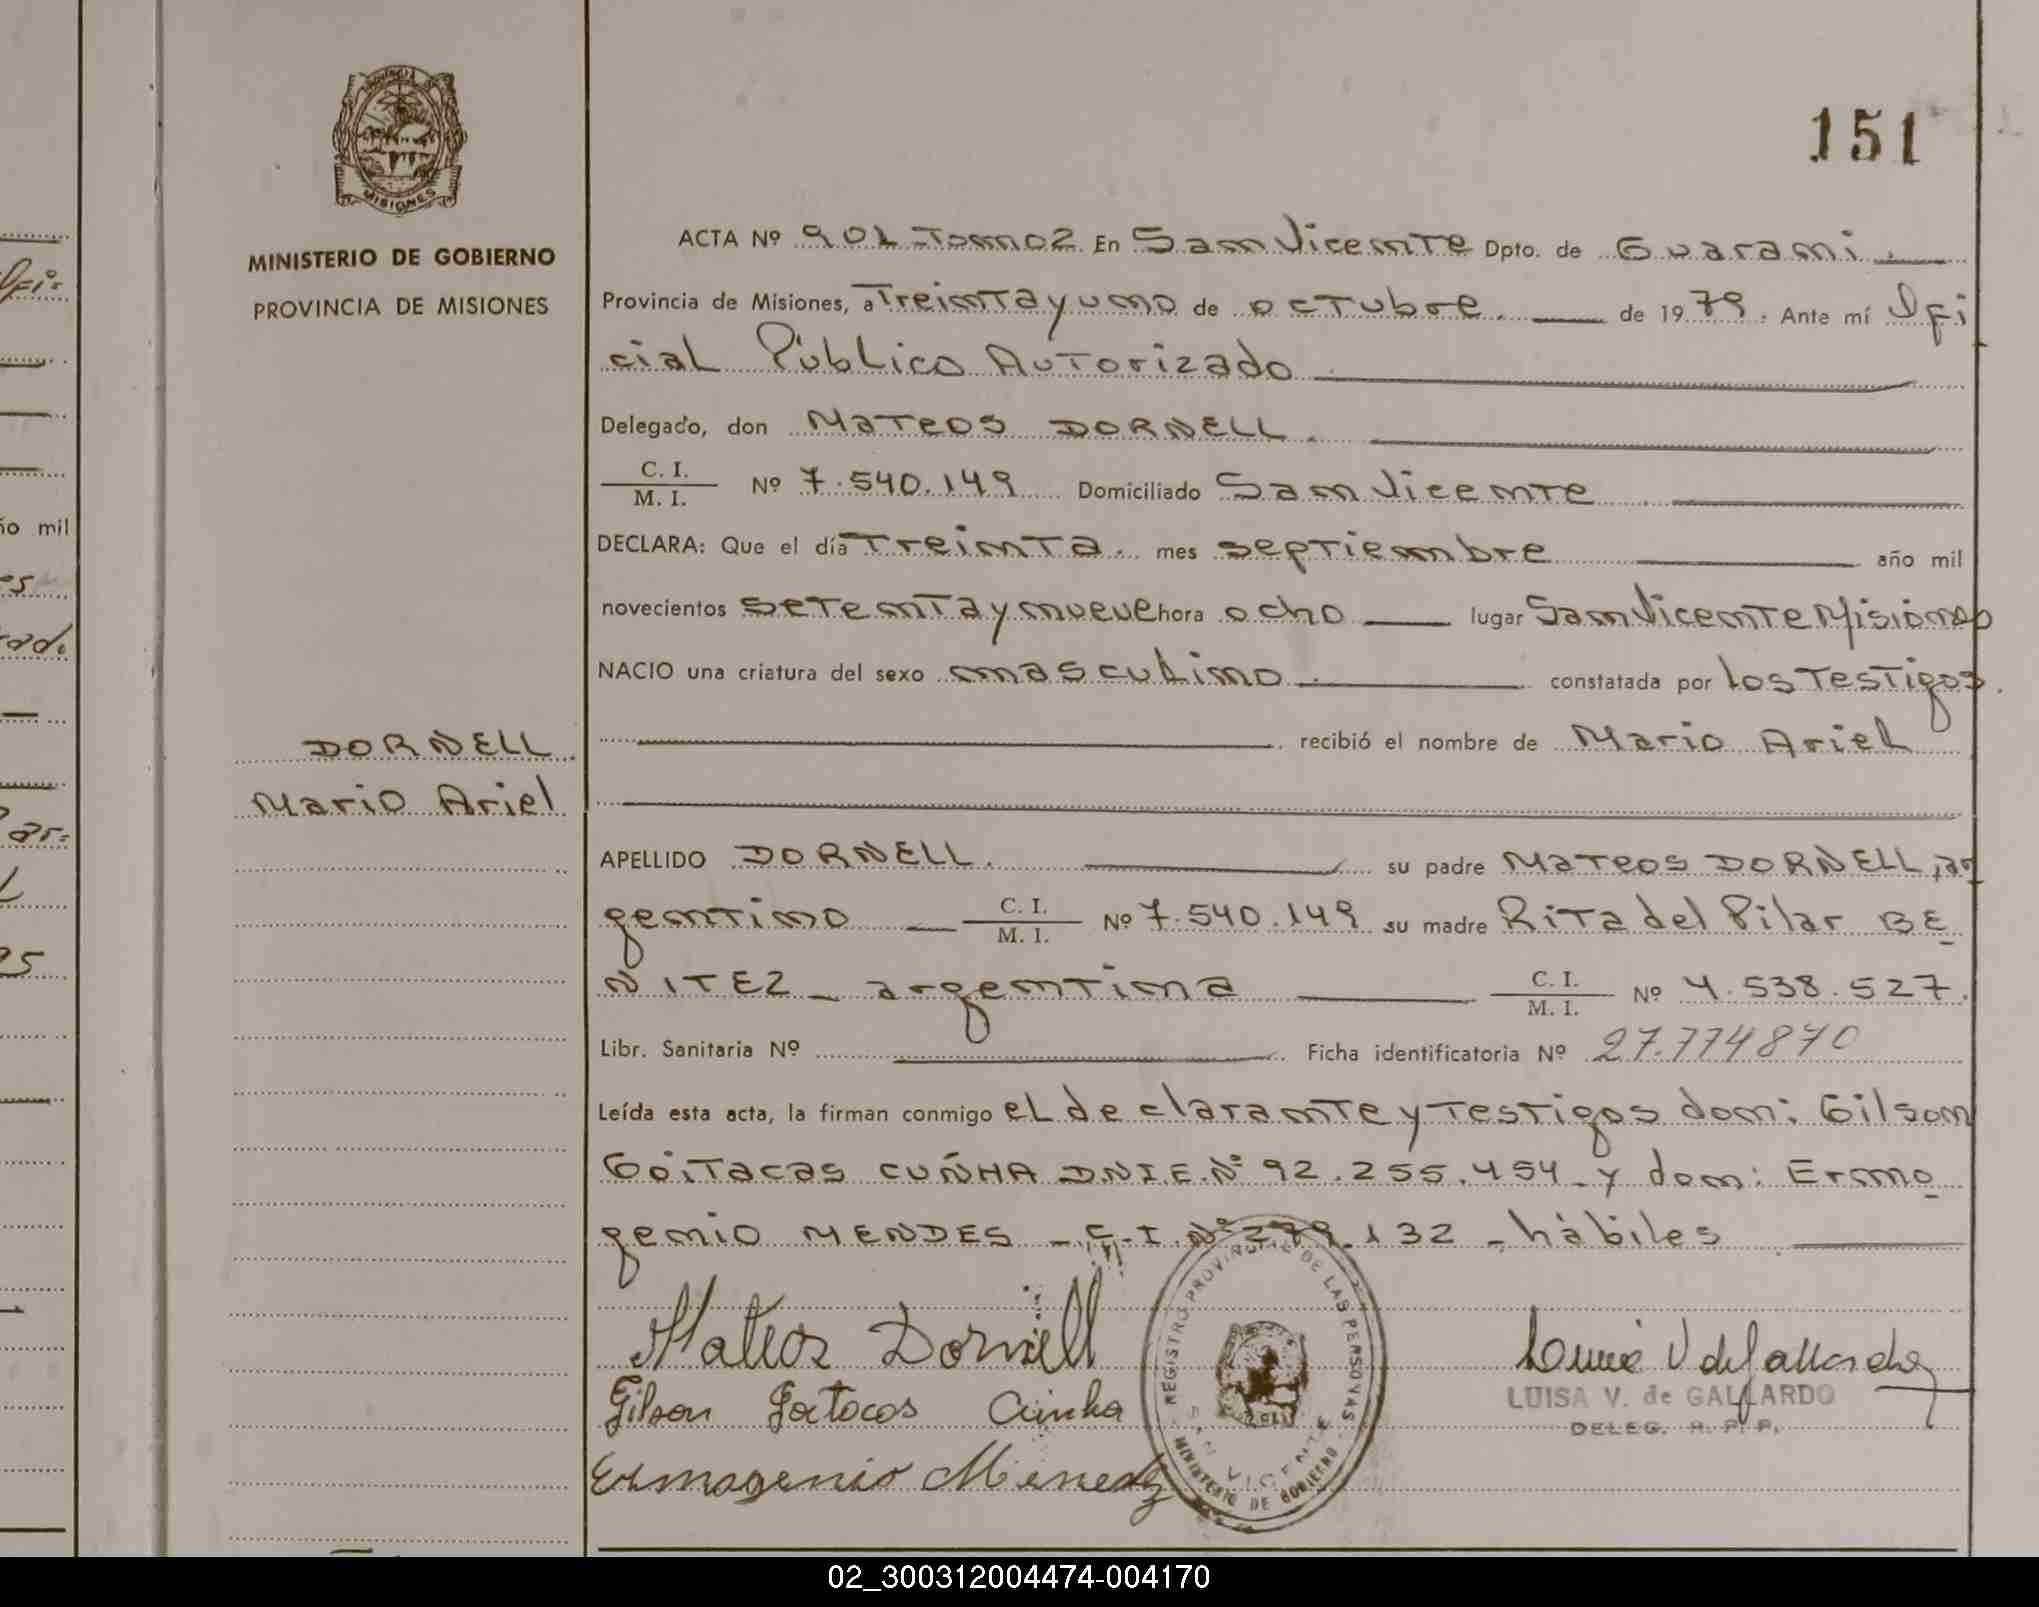 151
PROVINCIA DE
MISIONES
MINISTERIO DE GOBIERNO
PROVINCIA DE MISIONES
DORNELL.
Mario Ariel
ACTA Nº 901 Tomo 2 En San Vicente Dpto. de Guarani.
Provincia de Misiones, a Treinta y uno de octubre. de 1979. Ante mí Ofi
cial Público Autorizado
Delegado, don Mateos DORNELL.
C. I.
M. I. Nº 7.540.149 Domiciliado San Vicente
DECLARA: Que el día Treinta. mes septiembre año mil
novecientos setenta y nueve hora ocho lugar San Vicente Misiones
NACIO una criatura del sexo masculino. constatada por los testigos.
recibió el nombre de Mario Ariel
APELLIDO DORNELL. su padre Mateos DORNELL, ar
gentino C. I.
M. I. Nº 7.540.149 su madre Rita del Pilar BE
NITEZ - argentina C. I.
M. I. Nº 4.538.527.
Libr. Sanitaria Nº Ficha identificatoria Nº 27.774870
Leída esta acta, la firman conmigo el declarante y testigos don: Gilson
Goitacas CUÑHA DNI.E.Nº 92.255.454 - y don: Ermo
genio MENDES - C.I. Nº 279.132 - hábiles
Mateos Dornell
Gilson Goitacos Cunha
Ermogenio Mendez
REGISTRO PROVINCIAL DE LAS PERSONAS
SAN VICENTE
MINISTERIO DE GOBIERNO
LUISA V. de GALLARDO
DELEG. R. P. P.
ño mil
es
rad.
ar=
25
02_300312004474-004170